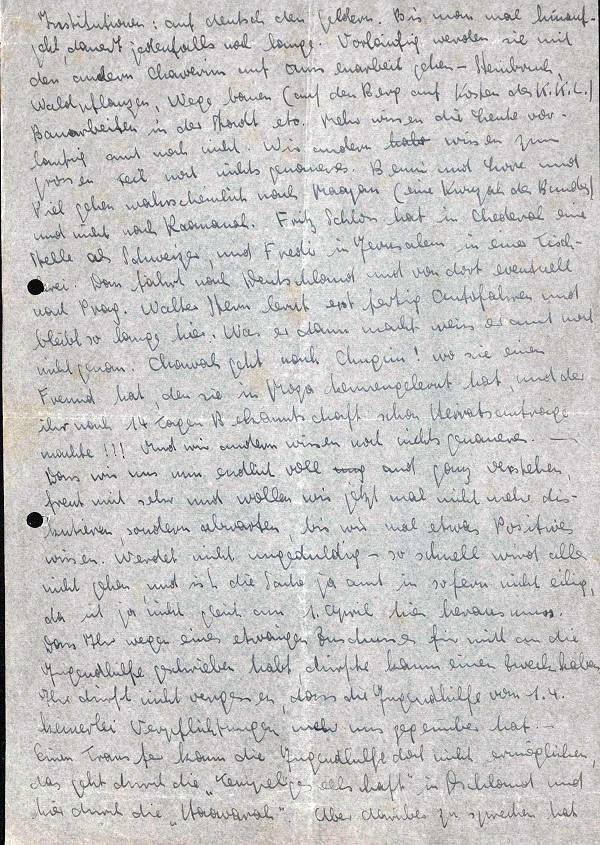 Institutionen: auf deutsch den Geldern. Bis man mal hinauf-
geht, dauert jedenfalls noch lange. Vorläufig werden sie mit
den andern Chawerim auf arbeit gehen – Steinbruch,
Waldpflanzen, Wege bauen (auf den Berg auf Kosten des K.K.L.)
Bauarbeiten in der Stadt etc. Mehr wissen die Leute vor-
läufig auch noch nicht. Wir andern wissen zum
grossen Teil noch nichts genaueres. Benni und Lore und
viel gehen wahrscheinlich nach Maayan (eine Kwuzah des Bundes)
und nicht nach Raananah. Fritz Schloss hat in Chederah eine
Stelle als Schweizer, und Fredi in Jerusalem in einer Tisch-
lerei. Dan fährt nach Deutschland und von dort eventuell
nach Prag. Walter Stern lernt erst fertig Autofahren und
bleibt so lange hier. Was er dann macht weiss er auch noch
nicht genau. Chawah geht nach Chugim! wo sie einen
Freund hat, den sie in kennengelernt hat, und der
ihr nach 14 Tagen Bekanntschaft schon Heiratsanträge
machte!!! Und wir andern wissen noch nichts genaueres. —
Dass wir uns nun endlich voll und ganz verstehen,
freut mich sehr und wollen wir jetzt mal nicht mehr dis-
kutieren, sondern abwarten, bis wir mal etwas Positives
wissen. Werdet nicht ungeduldig – so schnell wird alles
nicht gehen, und ist die Sache ja auch in sofern nicht eilig,
da ich ja nicht gleich am 1. April hier heraus muss.
Dass Ihr wegen eines etwaigen Zuschusses für mich an die
Jugendhilfe geschrieben habt, dürfte kaum einen Zweck haben.
Ihr dürft nicht vergessen, dass die Jugendhilfe vom 1.4.
keinerlei Verpflichtungen mehr uns gegenüber hat. –
Einen Transfer kann die Jugendhilfe doch nicht ermöglichen,
das geht durch die „Tempelgesellschaft" in Dschland und
hier durch die „Haawarah". Aber darüber zu sprechen hat